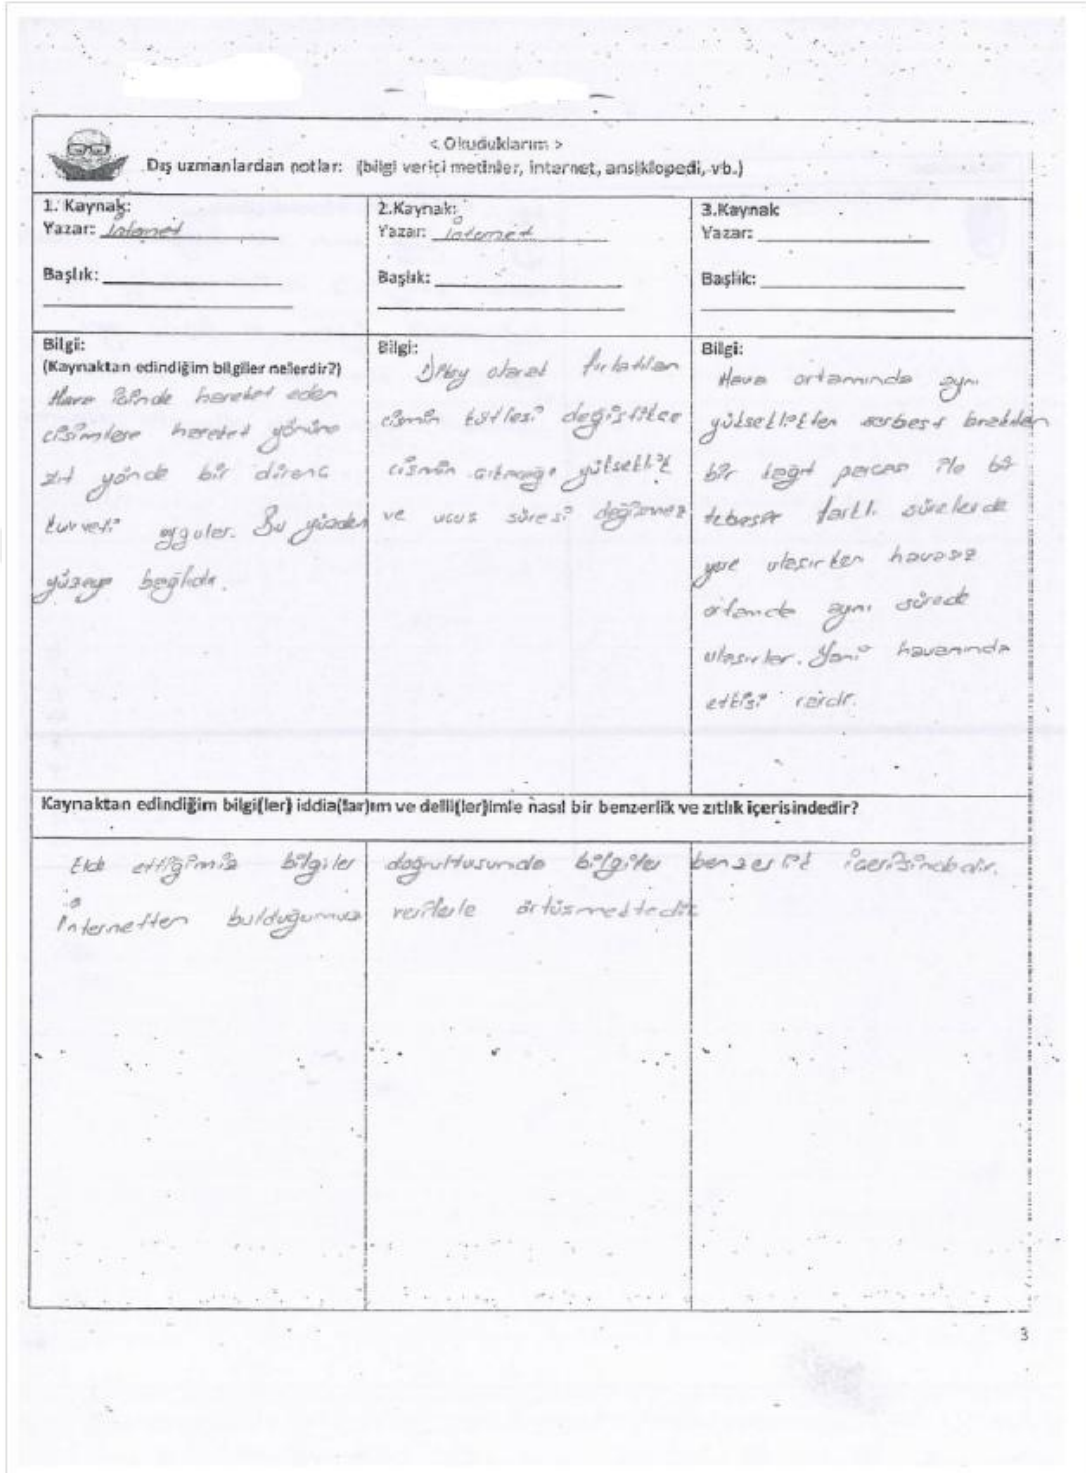 < Okuduklarım >
Dış uzmanlardan notlar: (bilgi verici metinler, internet, ansiklopedi, vb.)
1. Kaynak:
Yazar: İnternet
Başlık:
2.Kaynak:
Yazar: İnternet
Başlık:
3.Kaynak
Yazar:
Başlık:
Bilgi:
(Kaynaktan edindiğim bilgiler nelerdir?)
Hava içinde hareket eden
cisimlere hareket yönüne
zıt yönde bir direnc
kuvveti uygular. Bu yüzden
yüzeye bağlıdır.
Bilgi:
Düşey olarak fırlatılan
cismin kütlesi değiştikce
cismin cıkacağı yükseklik
ve ucus süresi değişmez
Bilgi:
Hava ortamında aynı
yükseklikten serbest bırakılan
bir kağıt parcası ile bir
tebeşir farklı sürelerde
yere ulaşırken havasız
ortamda aynı sürede
ulaşırlar. Yani havanında
etkisi vardır.
Kaynaktan edindiğim bilgi(ler) iddia(lar)ım ve delil(ler)imle nasıl bir benzerlik ve zıtlık içerisindedir?
Elde ettiğimiz bilgiler doğrultusunda bilgiler benzerlik icerisindedir.
İnternetten bulduğumuz verilerle örtüsmektedir
3